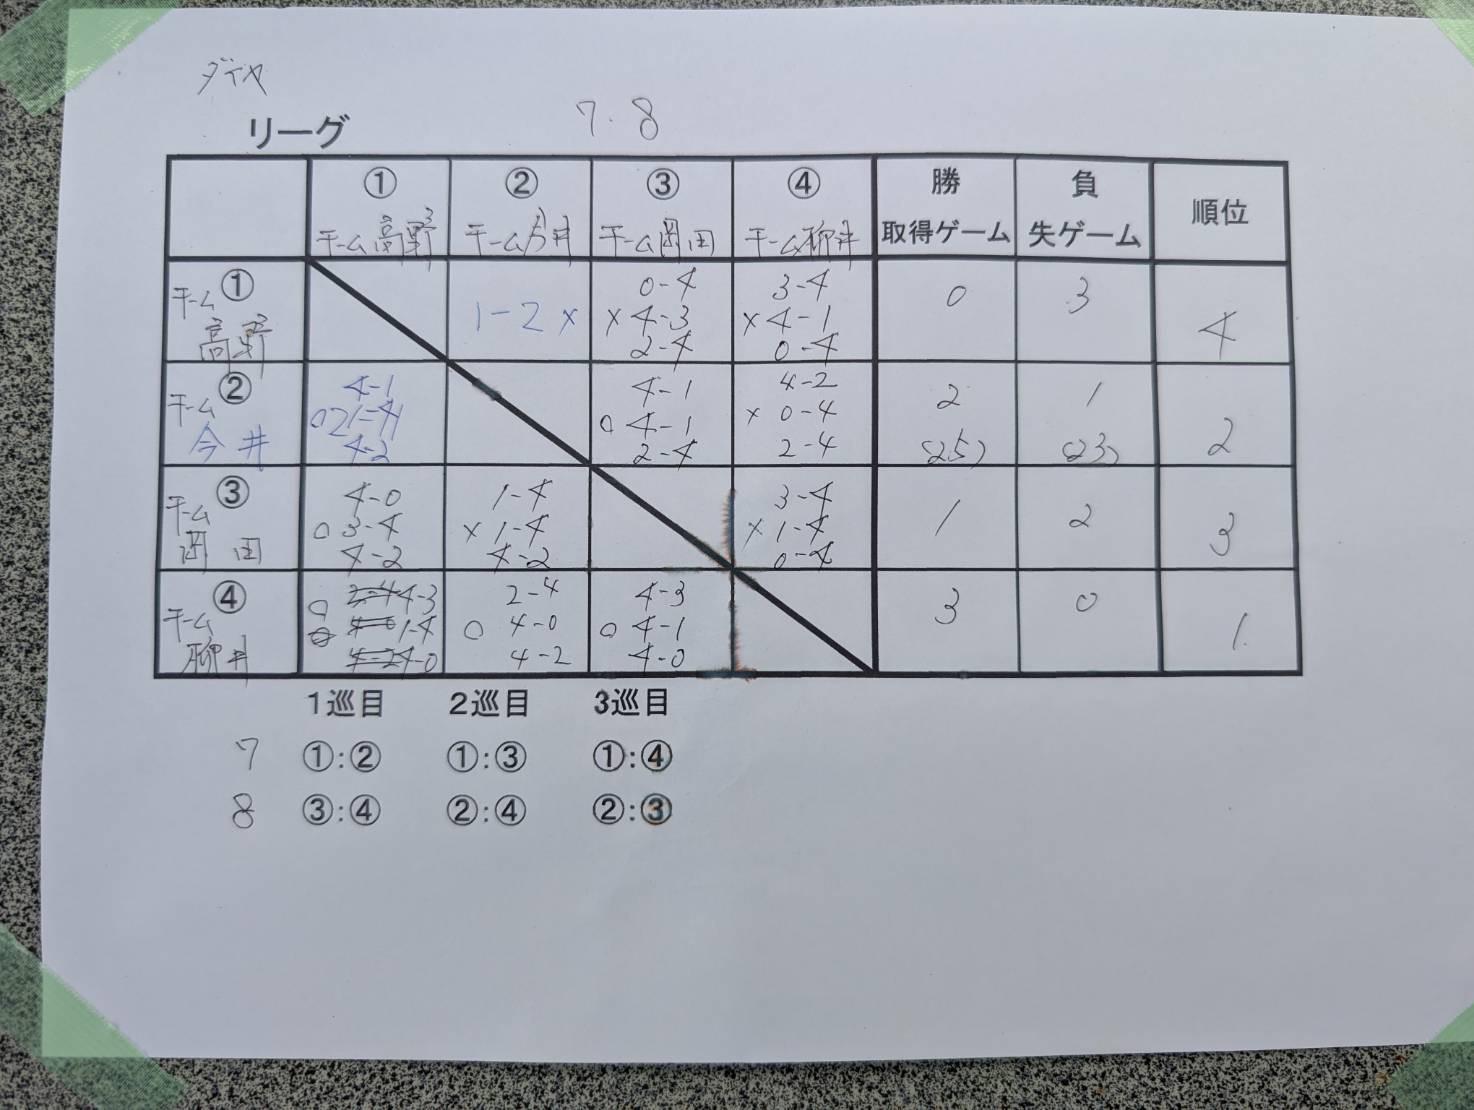 ダイヤ
リーグ
7.8
① ② ③ ④ 勝 負 順位
チーム高野 チーム今井 チーム岡田 チーム柳井 取得ゲーム 失ゲーム
① チーム高野
1-2 ×
0-4
× 4-3
2-4
3-4
× 4-1
0-4
0
3
4
② チーム今井
4-1
4-2
4-1
○ 4-1
2-4
4-2
× 0-4
2-4
2
(25)
1
(23)
2
③ チーム岡田
4-0
○ 3-4
4-2
1-4
× 1-4
4-2
3-4
× 1-4
0-4
1
2
3
④ チーム柳井
○ 4-3
1-4
4-0
2-4
○ 4-0
4-2
4-3
○ 4-1
4-0
3
0
1
1巡目 2巡目 3巡目
7 ①:② ①:③ ①:④
8 ③:④ ②:④ ②:③